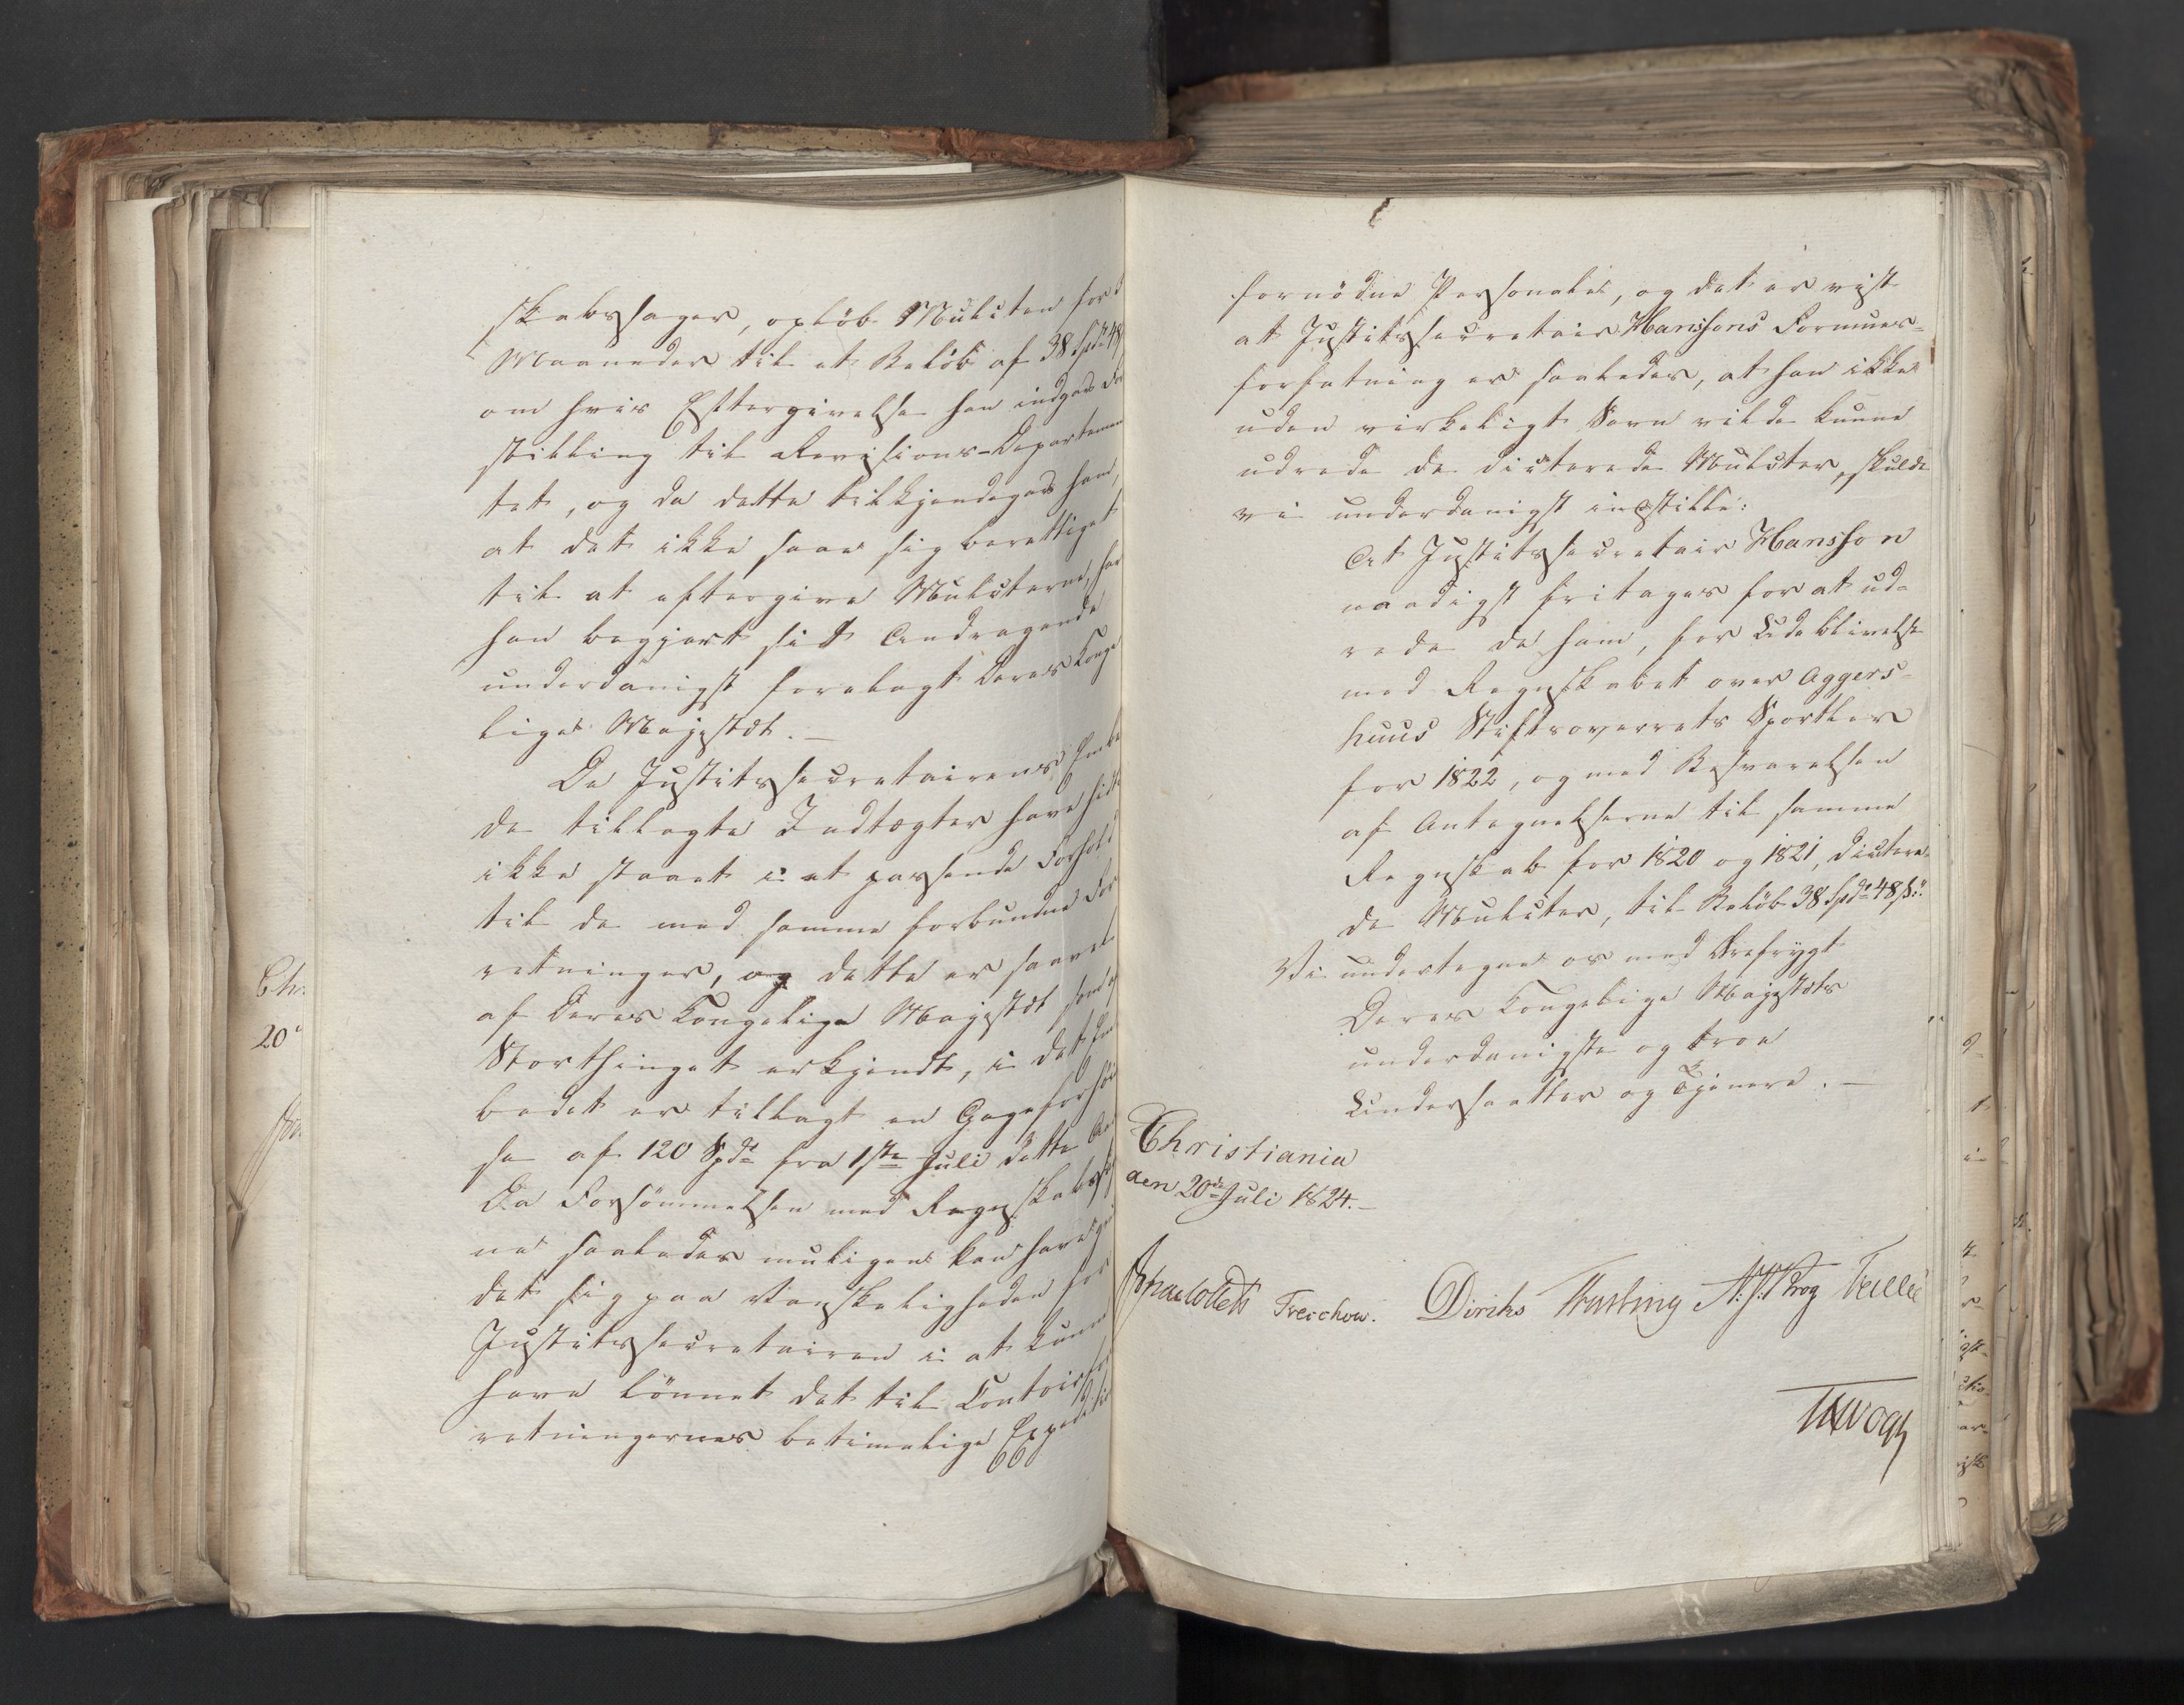 skabssager, opløb Mulcten for
Maaneder til et Beløb af 38 Spd 48
om hvis Eftergivelse han indgav For
stilling til Revisions-Departemen
tet, og da dette tilkjendegav ham,
at det ikke saae sig berettiget
til at eftergive Mulcterne, har
han begjært sit Andragende
underdanigst forelagt Deres Konge
lige Majestæt. —
De Justitssecretairens Embe
de tillagte Indtægter have hidtil
ikke staaet i et passende Forhold
til de med samme forbundne For
retninger, og dette er saavel
af Deres Kongelige Majestæt som af
Storthinget erkjendt, i det Em
bedet er tillagt en Gageforhøi
se af 120 Spd fra 1ste Juli dette Aar.
Da Forsømmelsen med Regnskaber
ne saaledes muligen kan have grun
det sig paa Vanskeligheden for
Justitssecretairen i at kunne
have lønnet det til Contoirfor
retningernes betimelige Expedition
fornødne Personale, og det er vist
at Justitssecretair Hanssons Formues-
forfatning er saaledes, at han ikke
uden virkeligt Savn vilde kunne
udrede de dicterede Mulcter, skulde
vi underdanigst indstille:
At Justitssecretair Hansson
naadigst fritages for at ud-
rede de ham, for Udeblivelse
med Regnskabet over Aggers-
huus Stiftsoverrets Sportler
for 1822, og med Besvarelsen
af Antegnelserne til samme
Regnskab for 1820 og 1821, dictere-
de Mulcter, til Beløb 38 Spd 48 ß.
Vi undertegne os med Ærefrygt
Deres Kongelige Majestæts
underdanigste og troe
Undersaatter og Tjenere. —
Christiania
den 20de Juli 1824. —
Treschow. Diriks Fasting Krog